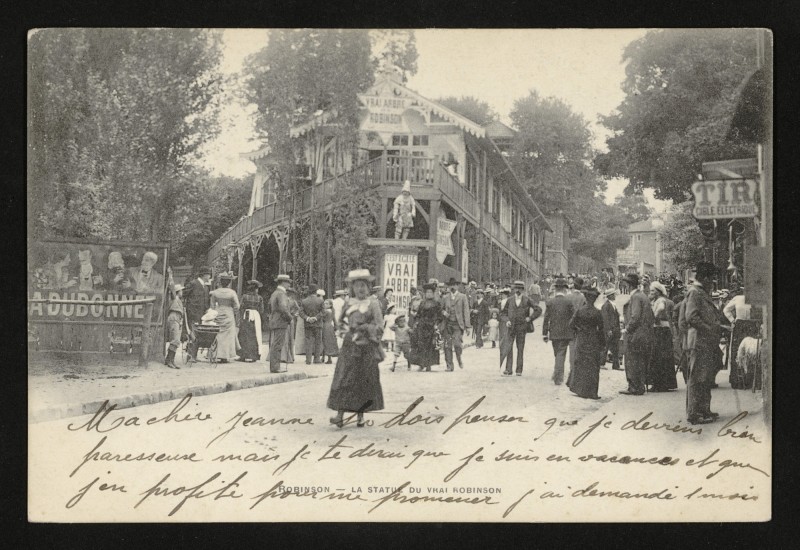 VRAI ARBRE
ROBINSON
TIR
CIBLE ELECTRIQUE
VRAI
ARBRE
ROBINSON
DUBONNET
Ma chère Jeanne tu dois penser que je deviens bien
paresseuse mais je te dirai que je suis en vacances et que
j'en profite pour me promener j'ai demandé 1 mois
ROBINSON — LA STATUE DU VRAI ROBINSON